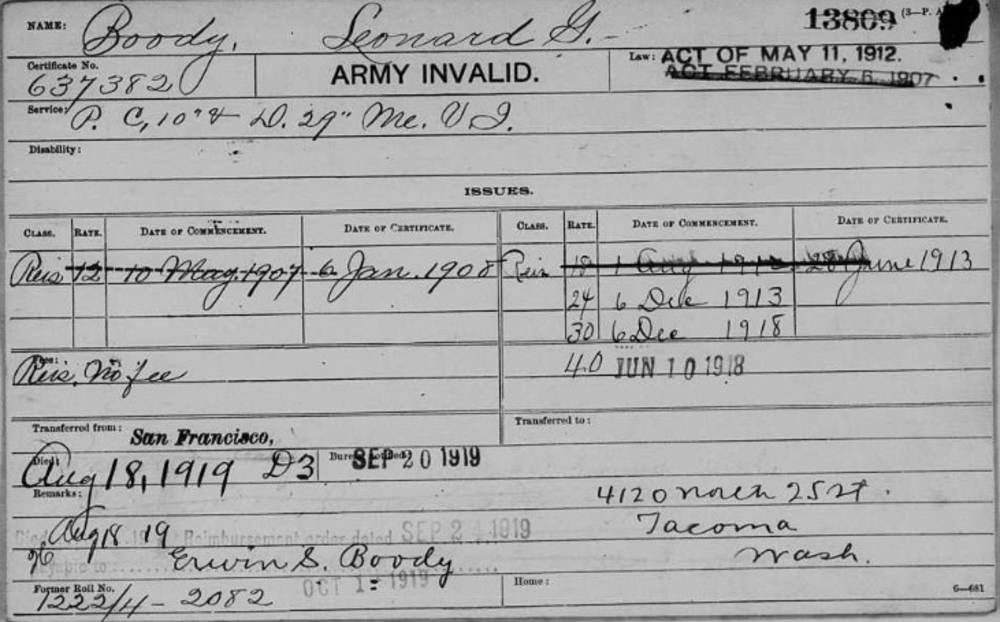 NAME: Boody, Leonard G.
13809 (3—P. A
Certificate No.
637382
ARMY INVALID.
Law: ACT OF MAY 11, 1912.
ACT FEBRUARY 6, 1907
Service: P. C, 10" & D. 29" Me. V I.
Disability:
ISSUES.
CLASS. RATE. DATE OF COMMENCEMENT. DATE OF CERTIFICATE. CLASS. RATE. DATE OF COMMENCEMENT. DATE OF CERTIFICATE.
Reis 12 10 May 1907 6 Jan. 1908 Reis 18 1 Aug 1912 28 June 1913
24 6 Dec 1913
30 6 Dec 1918
Reis. No fee
40 JUN 10 1918
Transferred from: San Francisco,
Transferred to:
Died: Aug 18, 1919 D3
SEP 20 1919
Remarks:
4120 North 25 St.
Aug 18 19
Reimbursement order dated SEP 24 1919
Tacoma
to Erwin S. Boody
Wash.
OCT 1 - 1919
Former Roll No.
1222/4 - 2082
Home:
6—681